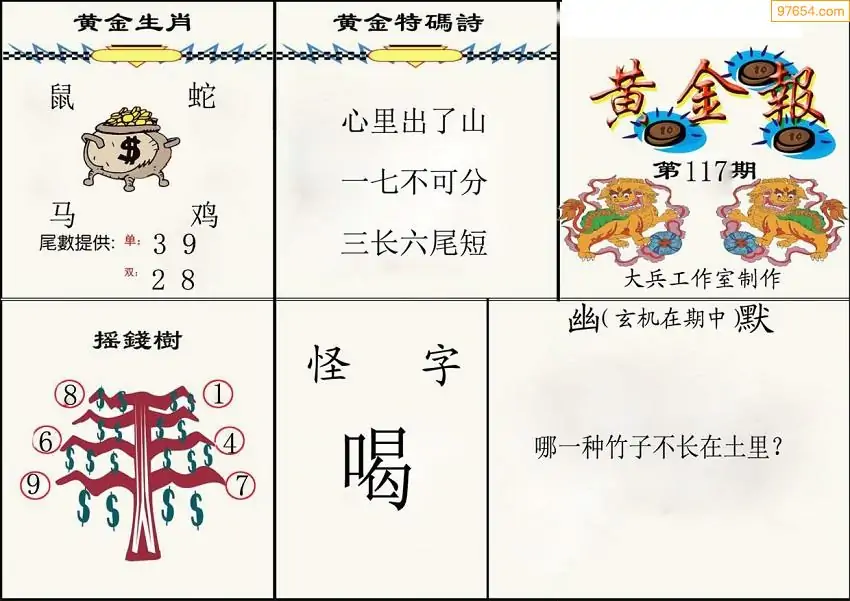 97654.com
黄金生肖
鼠 蛇
$
马 鸡
尾數提供: 单: 3 9
双: 2 8
黄金特碼詩
心里出了山
一七不可分
三长六尾短
黄金報
10
10
10
第117期
大兵工作室制作
摇錢樹
8 1
6 4
9 7
怪 字
喝
幽(玄机在期中)默
哪一种竹子不长在土里?